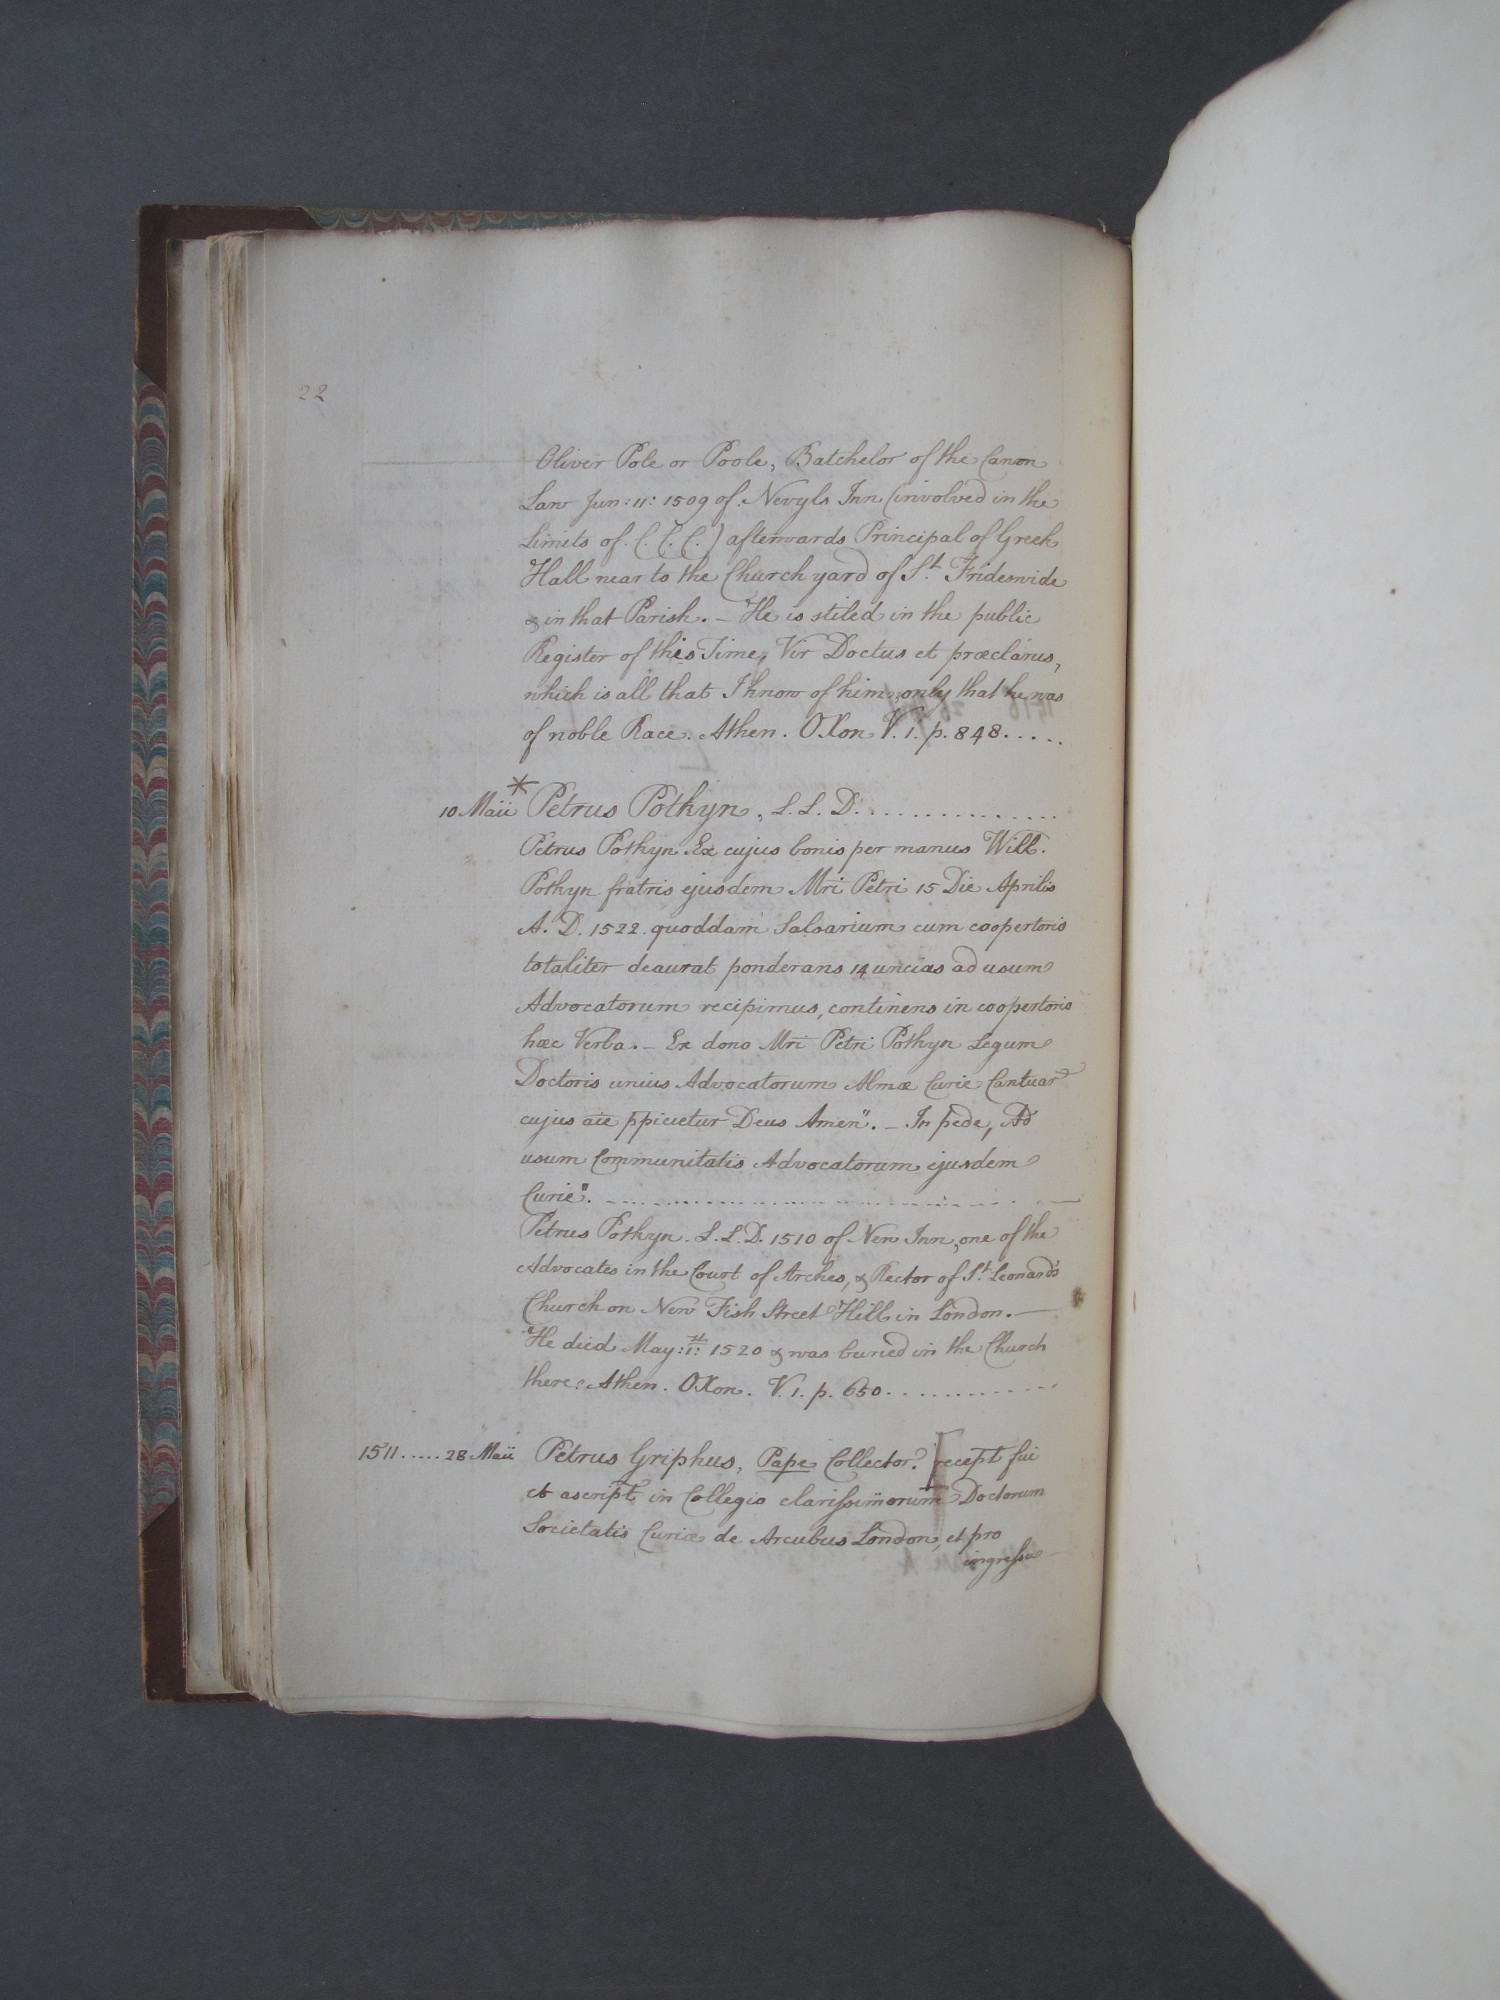 22
Oliver Pole or Poole, Batchelor of the Canon
Law Jun: 11: 1509 of Nevyls Inn (involved in the
Limits of C. C. C.) afterwards Principal of Greek
Hall near to the Church yard of St. Frideswide
& in that Parish. – He is stiled in the public
Register of this Time, Vir Doctus et præclarus,
which is all that I know of him, only that he was
of noble Race. Athen. OXon V. 1. p. 848.....
10 Maii * Petrus Pothyn, L. L. D. ..............
Petrus Pothyn Ex cujus bonis per manus Will.
Pothyn fratris ejusdem Mri Petri 15 Die Aprilis
A. D. 1522. quoddam Salsarium cum coopertorio
totaliter deaurat ponderans 14 uncias ad usum
Advocatorum recipimus, continens in coopertorio
hæc Verba. – Ex dono Mri Petri Pothyn Legum
Doctoris unius Advocatorum Almæ Curie Cantuar
cujus aie ppicietur Deus Amen". – In pede, Ad
usum Communitatis Advocatorum ejusdem
Curie".
Petrus Pothyn. L. L. D. 1510 of New Inn, one of the
Advocates in the Court of Arches, & Rector of St. Leonard's
Church on New Fish Street Hill in London. –
He died May: 1: 1520 & was buried in the Church
there: Athen. OXon. V. 1. p. 650.............
1511..... 28 Maii Petrus Griphus, Pape Collector. [recept fui
et ascript in Collegio clarissimorum Doctorum
Societatis Curiæ de Arcubus London, et pro
ingressu